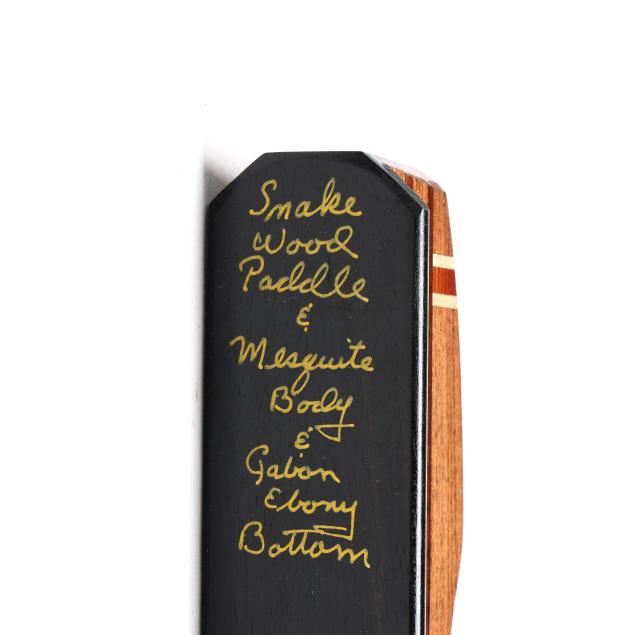 Snake
Wood
Paddle
&
Mesquite
Body
&
Gabon
Ebony
Bottom